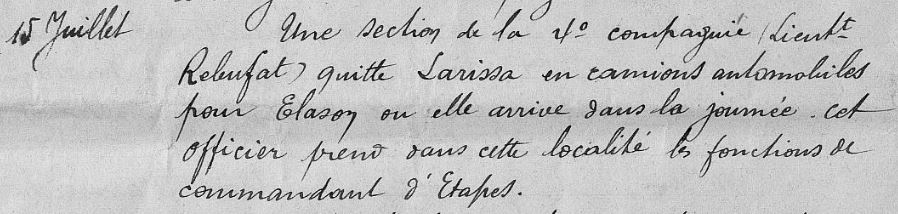 15 Juillet Une section de la 4e compagnie (Lieutt
Rebuffat) quitte Larissa en camions automobiles
pour Elason ou elle arrive dans la journée. cet
officier prend dans cette localité les fonctions de
commandant d'Etapes.